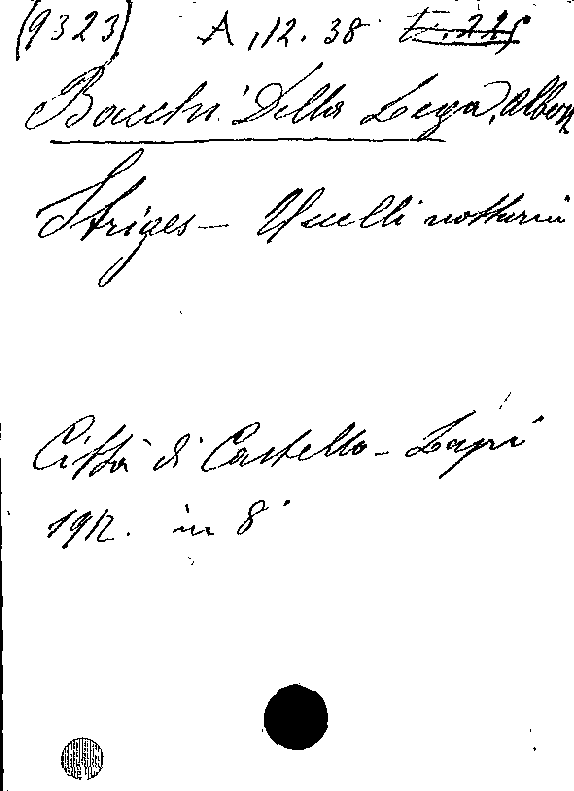 (9323) A, 12. 38
Bacchi Della Lega, Alberto
Striges - Uccelli notturni
Città di Castello - Lapi
1912. in 8°